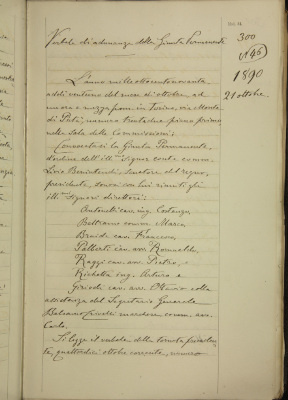 Verbale di adunanza della Giunta Permanente
300
(146)
1890
21 ottobre.
L'anno milleottocentonovanta,
addì ventuno del mese di ottobre, ad
ore e mezza pom. in Torino, via
di Pietà, numero trentadue piano primo
nella sala delle Commissioni;
Convocatasi la Giunta Permanente,
d'ordine dell'ill.mo signor conte comm.
Livio Benintendi, Senatore del regno,
presidente, sonosi con lui riuniti gli
ill.mi signori direttori:
Antonelli cav. ing. Costanzo
Beltramo comm. Marco
Braida cav. Francesco,
Palberti cav. avv. Romualdo,
Raggi cav. avv. Pietro, e
Richetta ing. Arturo e
Giriodi cav. avv. Ottavio colla
assistenza del Segretario Generale
Balsamo Crivelli marchese comm. avv.
Carlo.
Si legge il verbale della tornata preceden-
te, quattordici ottobre corrente, numero